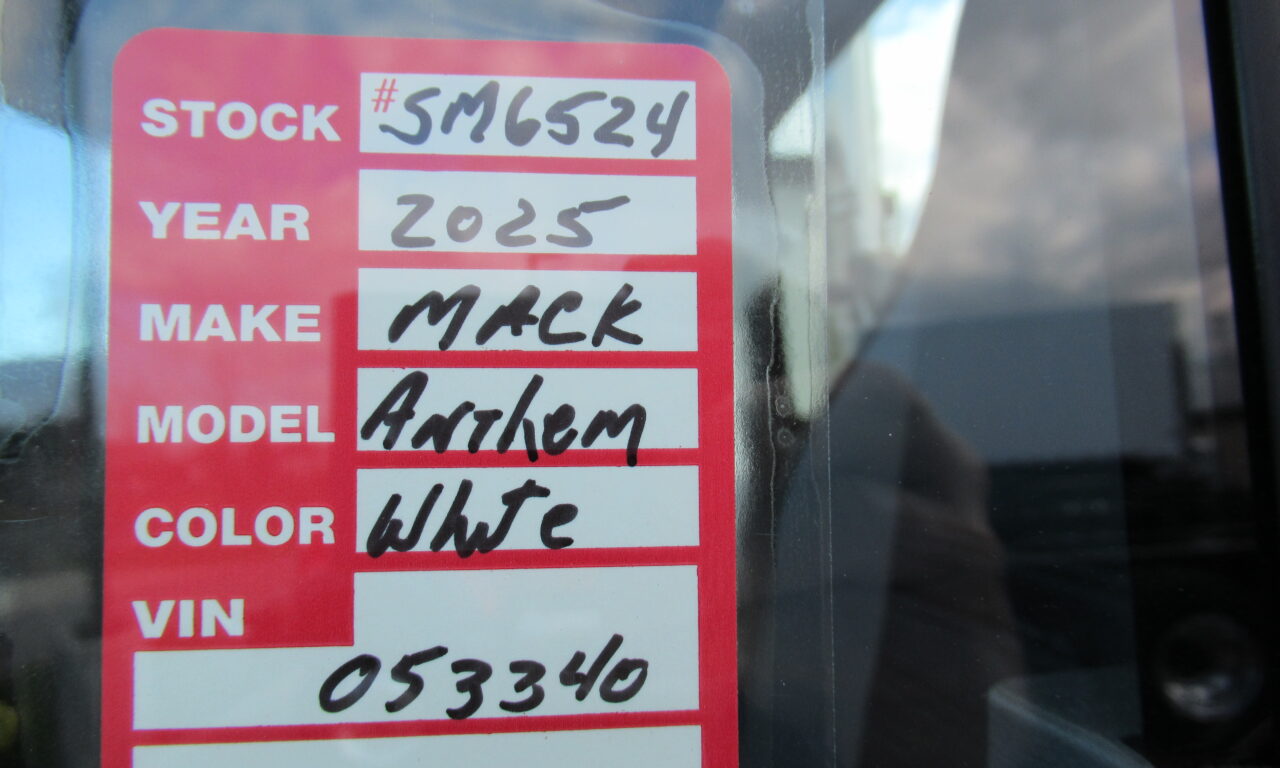 STOCK #SM6524
YEAR 2025
MAKE MACK
MODEL Anthem
COLOR White
VIN
053340